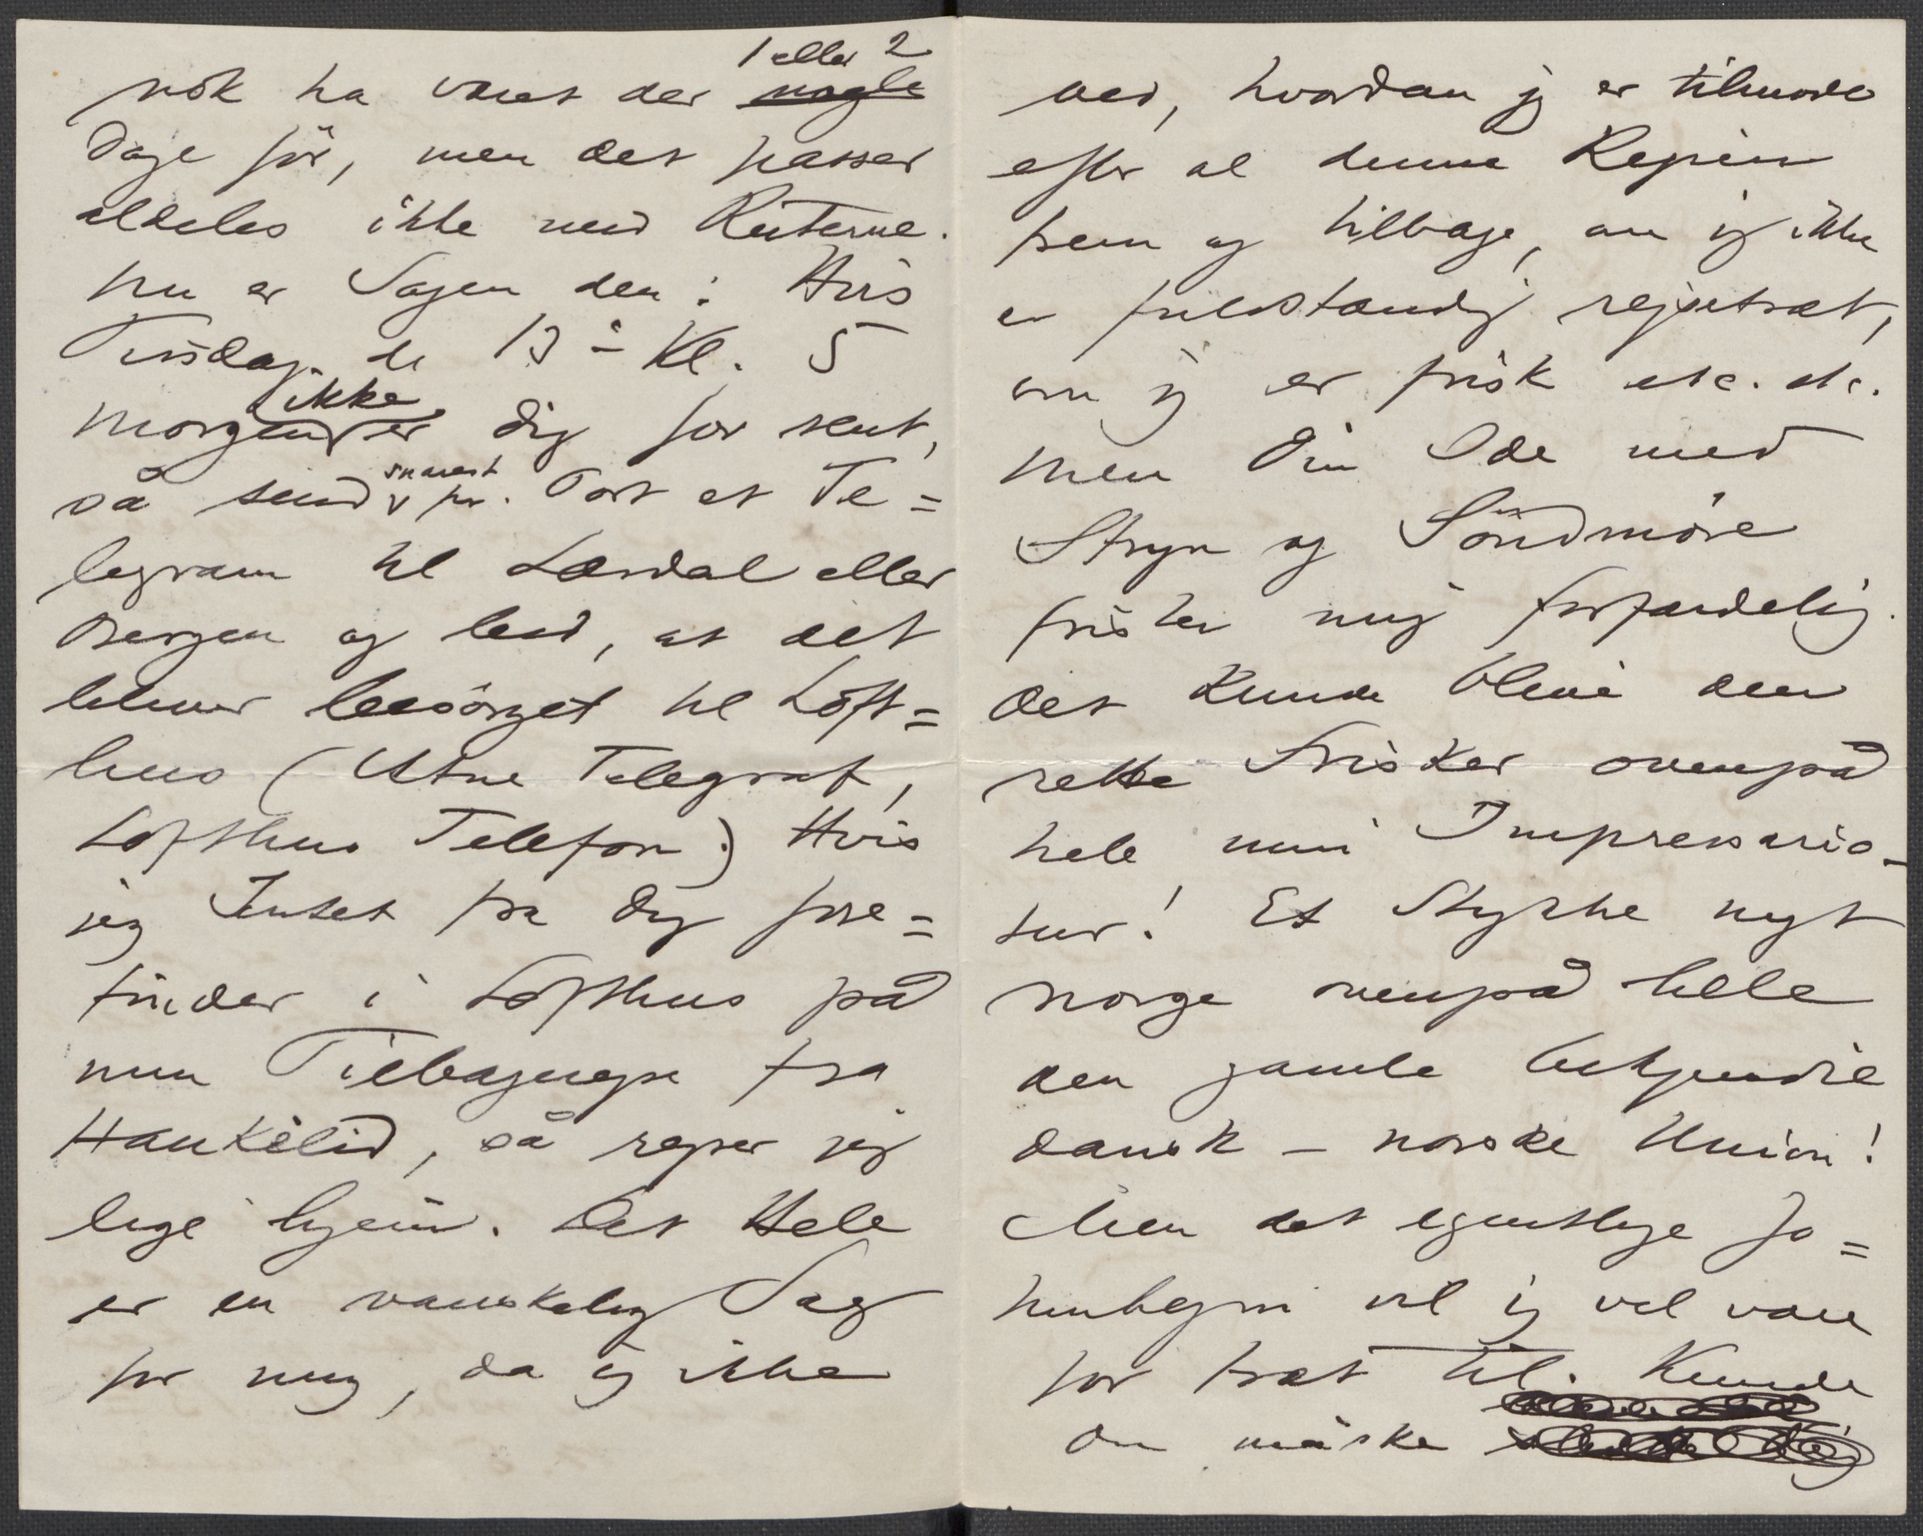 1 eller 2
nok ha været der nogle
Dage før, men det passer
aldeles ikke med Ruterne.
Nu er Sagen den: Hvis
Tirsdag d. 13de Kl. 5
ikke
Morgen er Dig for sent,
snarest
så send pr. Post et Te=
legram til Lærdal eller
Bergen og bed, at det
bliver besörget til Loft=
hus (Utne Telegraf,
Lofthus Telefon.) Hvis
jeg Intet fra Dig fore=
finder i Lofthus på
min Tilbagerejse fra
Haukelid, så rejser jeg
lige hjem. Det Hele
er en vanskelig Sag
for mig, da jeg ikke
ved, hvordan jeg er tilmode
efter al denne Rejsen
frem og tilbage, om jeg ikke
er fuldstændig rejsetræt,
om jeg er frisk etc. etc.
Men Din Ide med
Stryn og Söndmöre
frister mig forfærdelig.
Det kunde blive den
rette Frisker ovenpå
hele min Impressario-
tur! Et Stykke nyt
Norge ovenpå hele
den gamle bekjendte
dansk-norske Union!
Men det egentlige Jo=
tunhejmi vil jeg vel være
for træt til. Kunde
Du måske